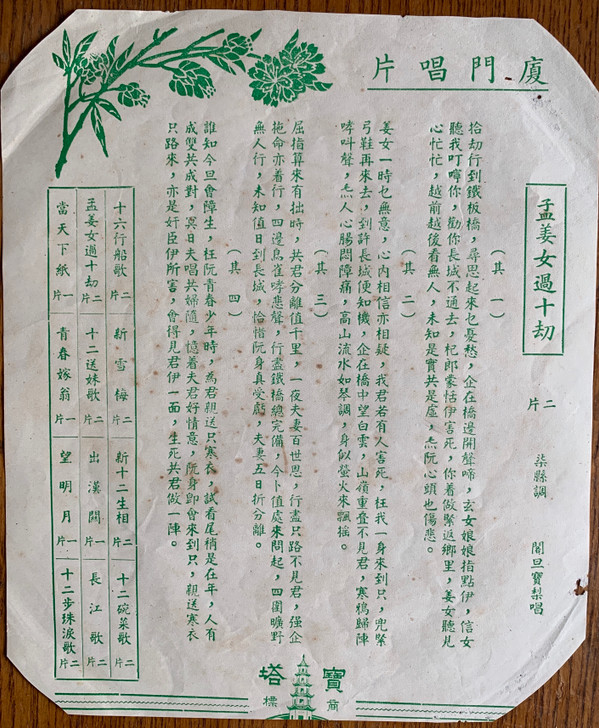 廈門唱片
孟姜女過十刧
二片
柒縣調
閨旦寶梨唱
（其一）
拾刧行到鐵板橋，尋思起來乜憂愁，企在橋邊開聲啼，玄女娘娘指點伊，信女
聽我叮嚀你，勸你長城不通去，杞郎蒙恬伊害死，你着做緊返鄉里，姜女聽見
心忙忙，越前越後看無人，未知是實共是虛，𤆬阮心頭也傷悲。
（其二）
姜女一時乜無意，心內相信亦相疑，我君若有人害死，枉我一身來到只，兜緊
弓鞋再來去，到許長城便知機，企在橋中望白雲，山嶺重叠不見君，寒鴉歸陣
哮叫聲，𤆬人心腸悶障痛，高山流水如琴調，身似螢火來飄搖。
（其三）
屈指算來有拙時，共君分離值千里，一夜夫妻百世恩，行盡只路不見君，强企
拖命亦着行，四邊鳥雀哮悲聲，行盡鐵橋總完備，今卜值處來問起，四圍曠野
無人行，未知值日到長城，恰惜阮身真受虧，夫妻五日折分離。
（其四）
誰知今旦會障生，枉阮青春少年時，為君親送只寒衣，試看尾稍是在年，人有
成雙共成對，冥日夫唱共婦隨，憶着夫君好情意，阮身即會來到只，親送寒衣
只路來，亦是奸臣伊所害，會得見君伊一面，生死共君做一陣。
十六行船歌 二片
新雪梅 二片
新十二生相 二片
十二碗菜歌 二片
孟姜女過十刧 二片
十二送妹歌 二片
出漢關 一片
長江歌 二片
當天下紙 一片
青春嫁翁 一片
望明月 一片
十二步珠淚歌 二片
寶塔
商標